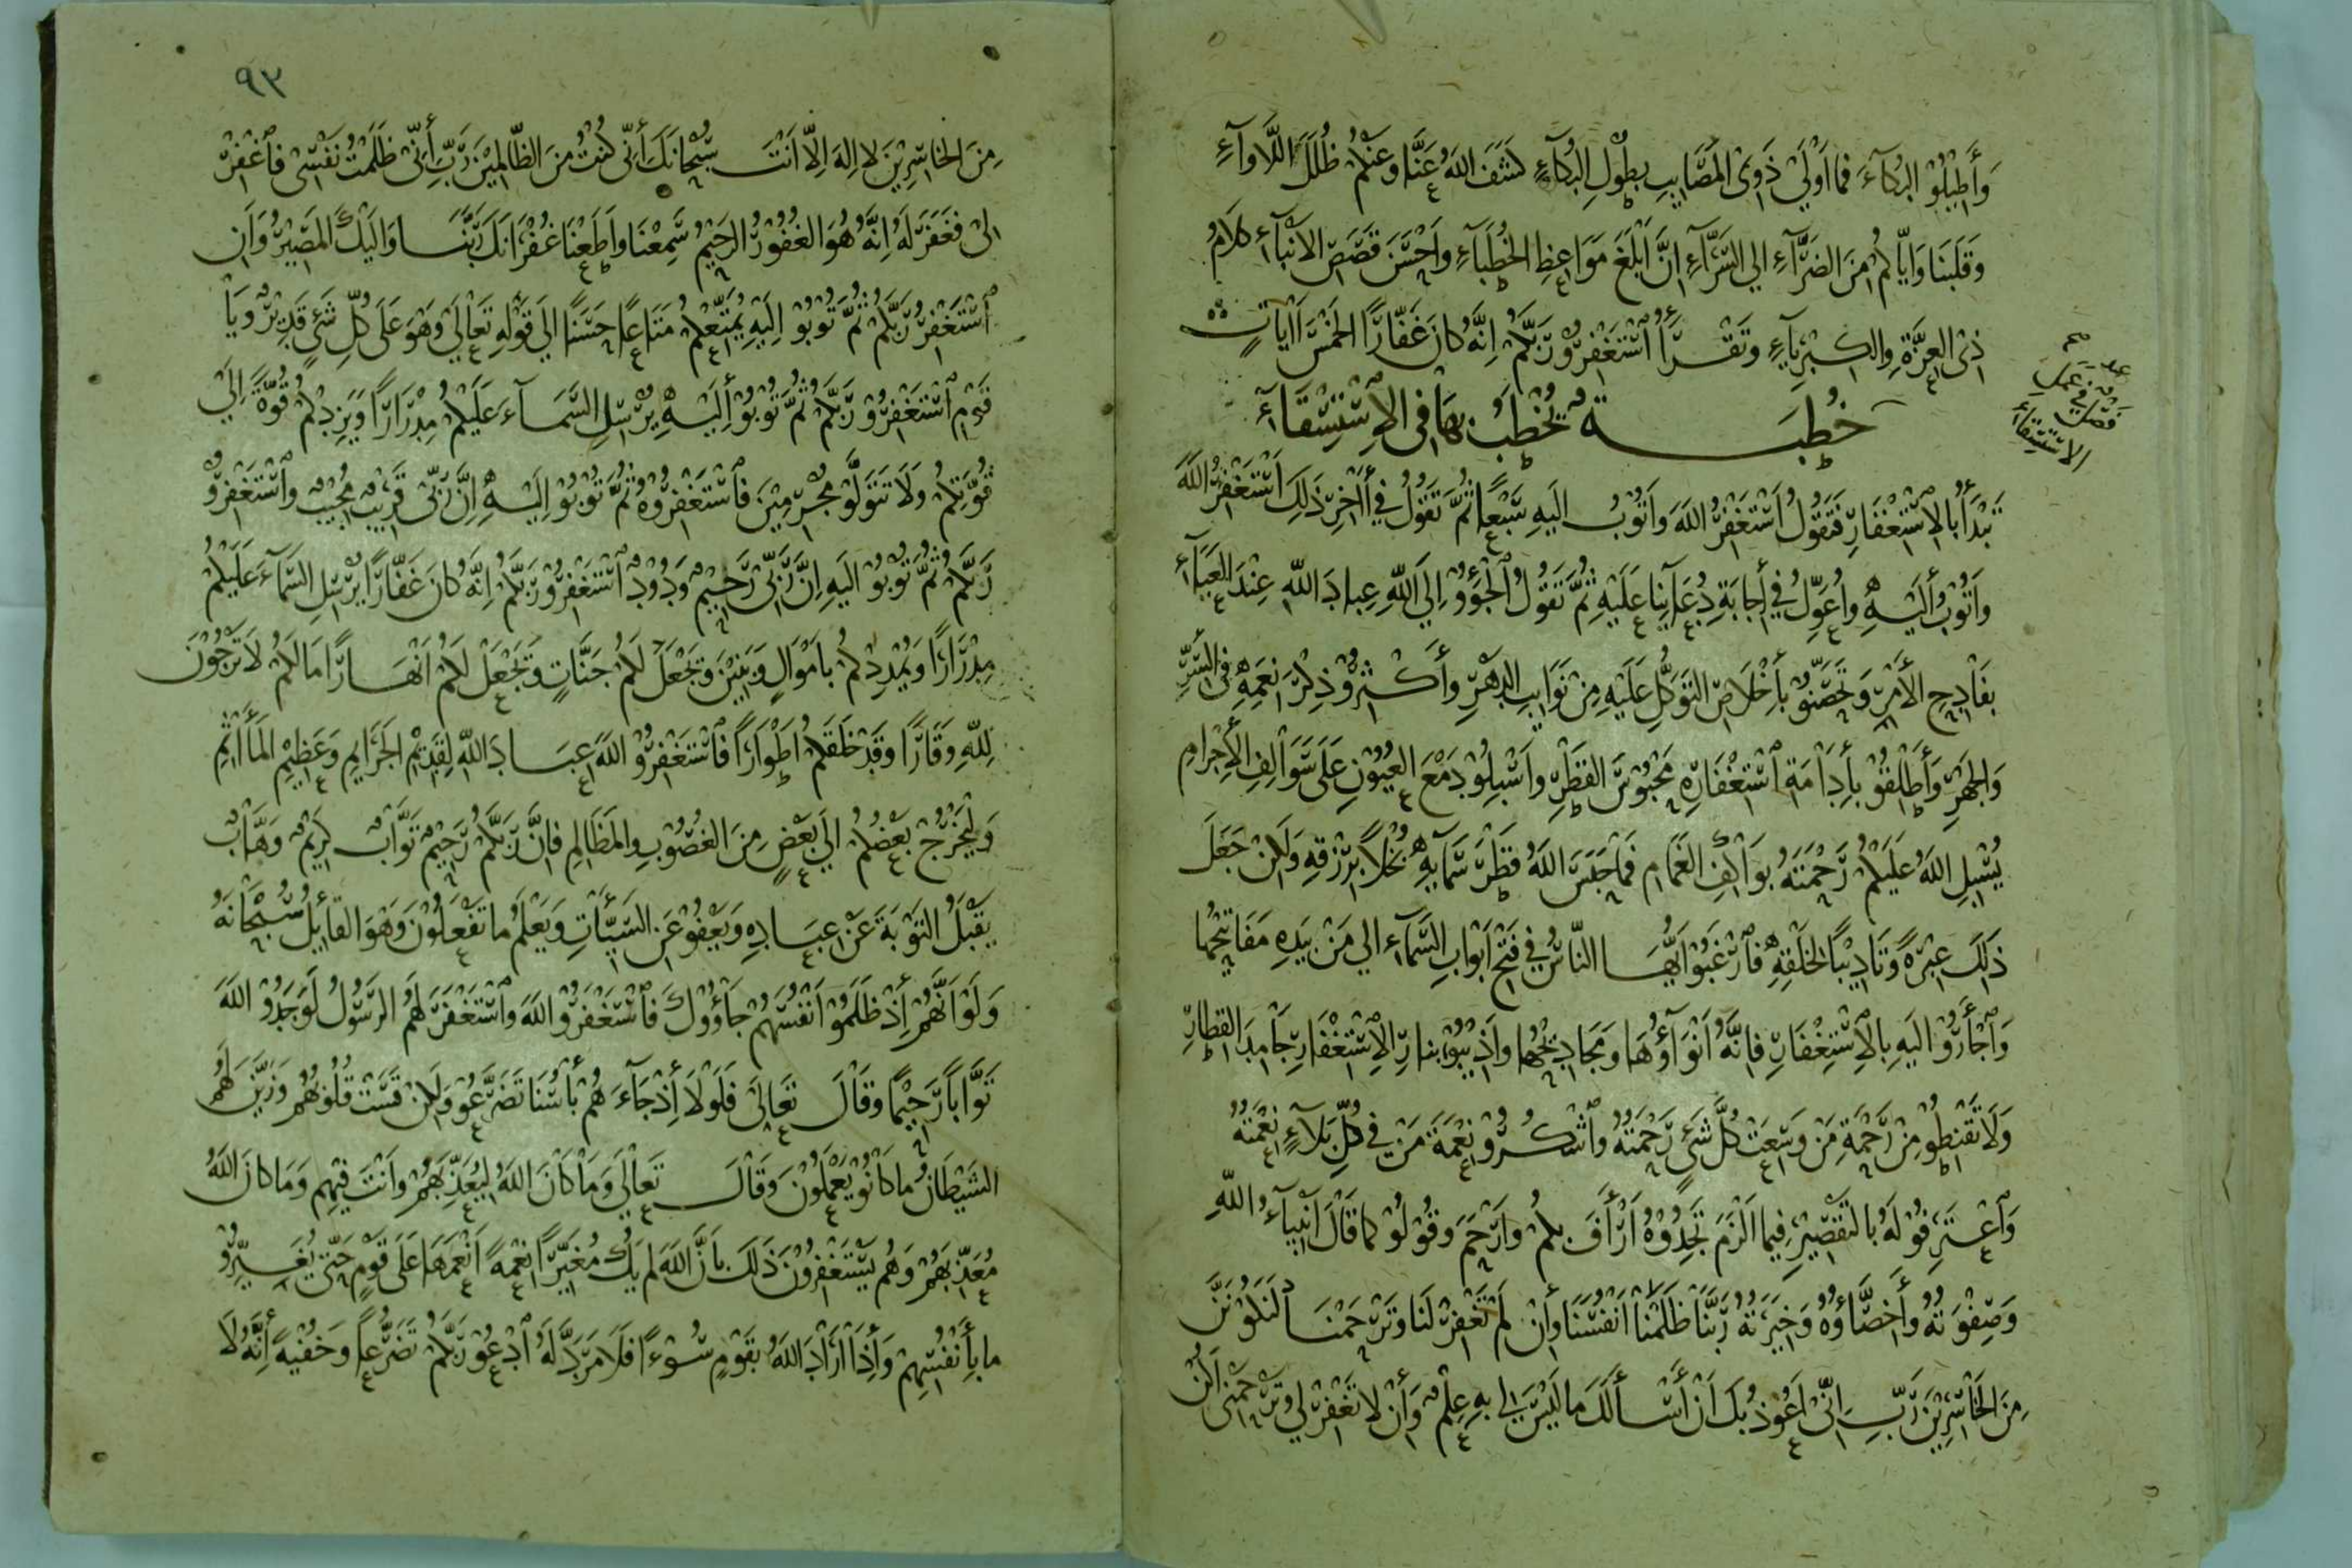 وَأَطِيْلُوْ البُكَآءَ فَمَا اَوْلَىٰ ذَوِىْ المَصَايِبِ بِطُوْلِ البُكَآءِ كَشَفَ اللهُ عَنَّا وَعَنْكُمْ ظُلَلَ اللَّاوَآءِ
وَقَلَبَنَا وَاِيَّاكُمْ مِنَ الضَرَّآءِ اِلي السَرَّآءِ اِنَّ اَبْلَغَ مَوَاعِظِ الخُطَبَآءِ وَاَحْسَنَ قَصَصِ الاَنْبَآءِ كَلَامُ
ذِىْ العِزَّةِ وَالكِبْرِيَآءِ وَتَقْرَأُ اُسْتَغْفِرُوْ رَبَّكُمْ اِنَّهُ كَانَ غَفَّارًا الخَمْسَ اَايَاتٍ
فصل في عمل الاستسقاء
خُطبَةٌ يُخْطَبُ بِهَا فِي الاِسْتِسْقَآءِ
تَبْدَأُ بِالاِسْتِغْفَارِ فَتَقُوْلُ اَسْتَغْفِرُ اللهَ وَاَتُوْبُ اِلَيْهِ سَبْعًا ثُمَّ تَقُوْلُ فِي أَاخِرِ ذَلِكَ اَسْتَغْفِرُ اللهَ
وَاَتُوْبُ اِلَيْهِ وَاُعَوِّلُ فِي اِجَابَةِ دُعَآيِنَا عَلَيْهِ ثُمَّ تَقُوْلُ اُلْجَؤُوْ اِلَي اللهِ عِبَادَ اللهِ عِنْدَ العَيَآءِ
بِفَادِحِ الأَمْرِ وَتَحَصَّنُوْ بِأِخْلَاصِ التَوَكُّلِ عَلَيْهِ مِنْ نَوَايِبِ الدَهْرِ وَأَكْثِرُوْ ذِكْرَ نِعَمِهِ فِي السِّرِّ
وَالجَهْرِ وَأَطْلِقُوْ بِأِدَامَةِ اسْتِغْفَارِهِ مَحْبُوْسَ القَطْرِ وَاَسْبِلُوْ دَمْعَ العُيُوْنِ عَلَى سَوَالِفِ الأِجْرَامِ
يُسْبِلِ اللهُ عَلَيْكُمْ رَحْمَتَهُ بِوَاكِفِ الغَمَامِ فَمَا حَبَسَ اللهُ قَطْرَ سَمَآيِهِ بُخْلًا بِرِزْقِهِ وَلَكِنْ جَعَلَ
ذَلِكَ عِبْرَةً وَتَادِيْبًا لِخَلْقِهِ فَارْغَبُوْا اَيُّهَا النَّاسُ فِي فَتْحِ اَبْوَابِ السَّمَآءِ اِلي مَنْ بِيَدِهِ مَفَاتِيْحُهَا
وَاجْأَرُوْ اِلَيْهِ بِالاِسْتِغْفَارِ فَاِنَّهُ اَنْوَآؤُهَا وَمَجَادِيْحُهَا وَاَذِيْبُوْ بِنَارِ الاِسْتِغْفَارِ جَامِدَ القِطَارِ
وَلَا تَقْنِطُوْ مِنْ رَحْمَةِ مَنْ وَسِعَتْ كُلَّ شَيْءٍ رَحْمَتُهُ وَاشْكُرُوْ نِعْمَةَ مَنْ فِي كُلِّ بَلَآءٍ نِعْمَتُهُ
وَاعْتَرِفُوْ لَهُ بِالتَقْصِيْرِ فِيْمَا اَلْزَمَ تَجِدُوْهُ اَرْأَفَ بِكُمْ وَاَرْحَمَ وَقُوْلُوْ كَمَا قَالَ اَنْبِيَآءُ اللهِ
وَصِفْوَتُهُ وَأَخِصَّاؤُهُ وَخِيَرَتُهُ رَبَّنَا ظَلَمْنَا اَنْفُسَنَا وَأِنْ لَمْ تَغْفِرْ لَنَا وَتَرْحَمْنَا لَنَكُوْنَنَّ
مِنَ الخَاسِرِيْنَ رَبِّ اِنِّي اَعُوْذُ بِكَ اَنْ أَسْأَلَكَ مَا لَيْسَ لِي بِهِ عِلْمٌ وَأِنْ لَا تَغْفِرْ لِي وَتَرْحَمْنِي اَكُنْ
٩٣
مِنَ الخَاسِرِيْنَ لا اِلهَ اِلَّا اَنْتَ سُبْحَانَكَ أِنِّي كُنْتُ مِنَ الظَّالِمِيْنَ رَبِّ أِنِّي ظَلَمْتُ نَفْسِي فَاغْفِرْ
لِيْ فَغَفَرَ لَهُ اِنَّهُ هُوَ الغَفُوْرُ الرَحِيْمُ سَمِعْنَا وَاَطَعْنَا غُفْرَانَكَ رَبَّنَا وَاِلَيْكَ المَصِيْرُ وَاَنِ
اسْتَغْفِرُوْ رَبَّكُمْ ثُمَّ تُوْبُوْ اِلَيْهِ يُمَتِّعْكُمْ مَتَاعًا حَسَنًا اِلي قَوْلِهِ تَعَالَي وَهُوَ عَلَى كُلِّ شَيْءٍ قَدِيْرٌ وَيَا
قَوْمِ اسْتَغْفِرُوْ رَبَّكُمْ ثُمَّ تُوْبُوْ أِلَيْهِ يُرْسِلِ السَّمَآءَ عَلَيْكُمْ مِدْرَارًا وَيَزِدْكُمْ قُوَّةً اِلَي
قُوَّتِكُمْ وَلَا تَتَوَلَّوْ مُجْرِمِيْنَ فَاسْتَغْفِرُوْهُ ثُمَّ تُوْبُوْ اِلَيْهِ اِنَّ رَبِّي قَرِيْبٌ مُجِيْبٌ وَاسْتَغْفِرُوْ
رَبَّكُمْ ثُمَّ تُوْبُوْ اِلَيْهِ اِنَّ رَبِّي رَحِيْمٌ وَدُوْدٌ اسْتَغْفِرُوْ رَبَّكُمْ اِنَّهُ كَانَ غَفَّارًا يُرْسِلِ السَّمَآءَ عَلَيْكُمْ
مِدْرَارًا وَيُمْدِدْكُمْ بِاَمْوَالٍ وَبَنِيْنَ وَيَجْعَلْ لَكُمْ جَنَّاتٍ وَيَجْعَلْ لَكُمْ اَنْهَارًا مَا لَكُمْ لَا تَرْجُوْنَ
لِلّهِ وَقَارًا وَقَدْ خَلَقَكُمْ اَطْوَارًا فَاسْتَغْفِرُوْ اللهَ عِبَادَ اللهِ لِقَدِيْمِ الجَرَايِمِ وَعَظِيْمِ المَأَاثِمِ
وَلْيَخْرُجْ بَعْضُكُمْ اِلي بَعْضٍ مِنَ الغُصُوْبِ وَالمَظَالِمِ فَاِنَّ رَبَّكُمْ رَحِيْمٌ تَوَّابٌ كَرِيْمٌ وَهَّابٌ
يَقْبَلُ التَوْبَةَ عَنْ عِبَادِهِ وَيَعْفُوْ عَنِ السَيِّئَاتِ وَيَعْلَمُ مَا تَفْعَلُوْنَ وَهُوَ القَايِلُ سُبْحَانَهُ
وَلَوْ اَنَّهُمْ أِذْ ظَلَمُوْا اَنْفُسَهُمْ جَاؤُوْكَ فَاسْتَغْفَرُوْ اللهَ وَاسْتَغْفَرَ لَهُمُ الرَّسُوْلُ لَوَجَدُوْ اللهَ
تَوَّابًا رَحِيْمًا وَقَالَ تَعَالَى فَلَوْلَا أِذْ جَآءَهُمْ بَأْسُنَا تَضَرَّعُوْ وَلَكِنْ قَسَتْ قُلُوْبُهُمْ وَزَيَّنَ لَهُمُ
الشَيْطَانُ مَا كَانُوْ يَعْمَلُوْنَ وَقَالَ تَعَالَي وَمَا كَانَ اللهُ لِيُعَذِّبَهُمْ وَاَنْتَ فِيْهِمْ وَمَا كَانَ اللهُ
مُعَذِّبَهُمْ وَهُمْ يَسْتَغْفِرُوْنَ ذَلِكَ بِاَنَّ اللهَ لَمْ يَكُ مُغَيِّرًا نِعْمَةً اَنْعَمَهَا عَلَى قَوْمٍ حَتَّى يُغَيِّرُوْ
مَا بِأَنْفُسِهِمْ وَأِذَا اَرَادَ اللهُ بِقَوْمٍ سُوْءًا فَلَا مَرَدَّ لَهُ ادْعُوْ رَبَّكُمْ تَضَرُّعًا وَخُفْيَةً أِنَّهُ لَا